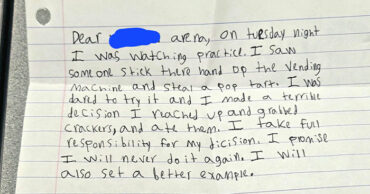 Dear arena, on tuesday night
I was watching practice. I saw
someone stick there hand up the vending
machine and steal a pop tart. I was
dared to try it and I made a terrible
decision I reached up and grabbed
crackers, and ate them. I take full
responsibility for my dicision. I promise
I will never do it again. I will
also set a better example.